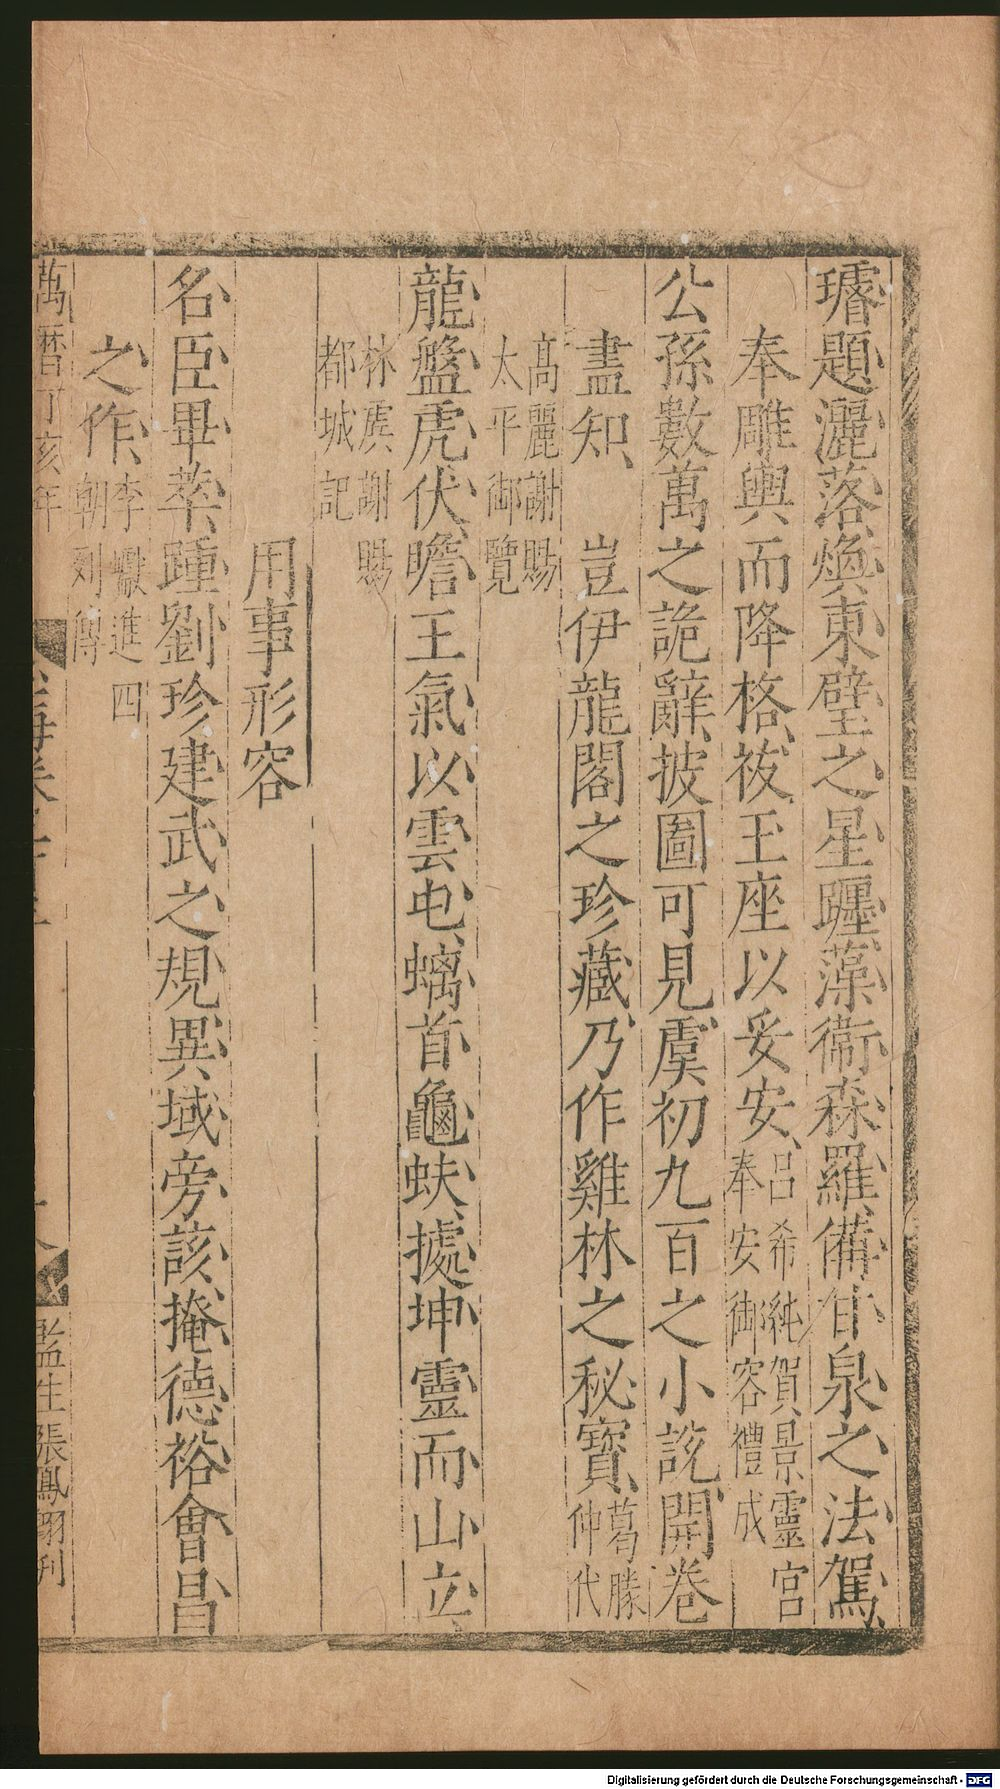 璿題灑落、煥東壁之星躔、藻衛森羅、備甘泉之法駕、
奉雕輿而降格、祓玉座以妥安、呂希純賀景靈宮奉安御容禮成
公孫數萬之詭辭、披圖可見、虞初九百之小說、開卷
盡知、 豈伊龍閣之珍藏、乃作雞林之秘寶、葛勝仲代
高麗謝賜太平御覽
龍盤虎伏、瞻王氣以雲屯、螭首龜蚨、據坤靈而山立、
林虡謝賜都城記
用事形容
名臣畢萃、踵劉珍建武之規、異域旁該、掩德裕會昌
之作、李巘進四朝列傳
萬曆丁亥年
監生張鳳翮刋
Digitalisierung gefördert durch die Deutsche Forschungsgemeinschaft - DFG